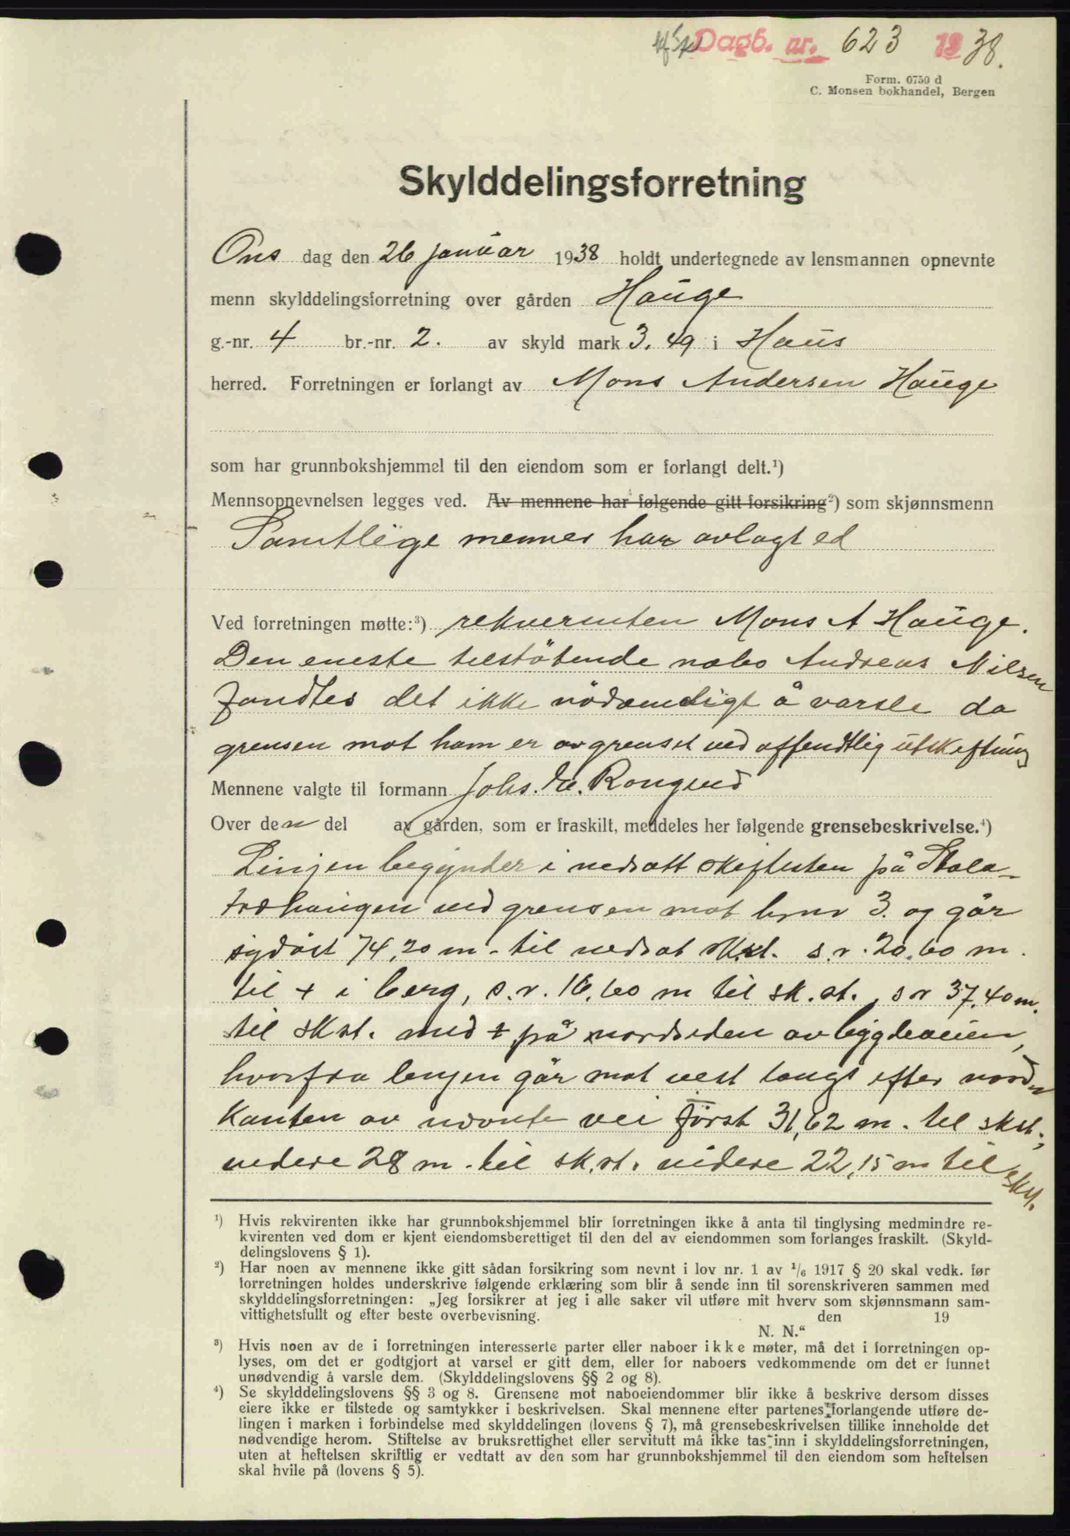 Dagb. nr. 623 1938.
Form. 0750 d
C. Monsen bokhandel, Bergen
Skylddelingsforretning
Onsdag den 26 januar 1938 holdt undertegnede av lensmannen opnevnte
menn skylddelingsforretning over gården Hauge
g.-nr. 4 br.-nr. 2. av skyld mark 3.49 i Haus
herred. Forretningen er forlangt av Mons Andersen Hauge
som har grunnbokshjemmel til den eiendom som er forlangt delt.¹)
Mennsopnevnelsen legges ved. Av mennene har følgende gitt forsikring²) som skjønnsmenn
Samtlige menner har avlagt ed
Ved forretningen møtte:³) rekvirenten Mons A Hauge.
Den eneste tilstötende nabo Andreas Nilsen
fandtes det ikke nödvendigt å varsle da
grensen mot ham er avgrenset ved offentlig utskiftning
Mennene valgte til formann Johs. M. Rongved
Over den del av gården, som er fraskilt, meddeles her følgende grensebeskrivelse.⁴)
Linjen begynder i nedsatt skiftesten på
ved grensen mot brnr 3. og går
sydöst 74,20 m. til nedsat sk.st. s.v. 20,60 m.
til + i berg, s.v. 16,60 m til sk.st., s v 37,40 m.
til sk.st. med + på nordsiden av bygdeveien,
hvorfra linjen går mot vest langs efter nordre
kanten av nevnte vei först 31,62 m. til skst.,
videre 28 m. til sk.st. videre 22,15 m til skst.
¹) Hvis rekvirenten ikke har grunnbokshjemmel blir forretningen ikke å anta til tinglysing medmindre re-
kvirenten ved dom er kjent eiendomsberettiget til den del av eiendommen som forlanges fraskilt. (Skyld-
delingslovens § 1).
²) Har noen av mennene ikke gitt sådan forsikring som nevnt i lov nr. 1 av ¹/₆ 1917 § 20 skal vedk. før
forretningen holdes underskrive følgende erklæring som blir å sende inn til sorenskriveren sammen med
skylddelingsforretningen: „Jeg forsikrer at jeg i alle saker vil utføre mit hverv som skjønnsmann sam-
vittighetsfullt og efter beste overbevisning. den 19
N. N.“
³) Hvis noen av de i forretningen interesserte parter eller naboer ikke møter, må det i forretningen op-
lyses, om det er godtgjort at varsel er gitt dem, eller for naboers vedkommende om det er funnet
unødvendig å varsle dem. (Skylddelingslovens §§ 2 og 8).
⁴) Se skylddelingslovens §§ 3 og 8. Grensene mot naboeiendommer blir ikke å beskrive dersom disses
eiere ikke er tilstede og samtykker i beskrivelsen. Skal mennene efter partenes forlangende utføre de-
lingen i marken i forbindelse med skylddelingen (lovens § 7), må grensebeskrivelsen tillike inneholde det
nødvendige herom. Stiftelse av bruksrettighet eller servitutt må ikke tas inn i skylddelingsforretningen,
uten at heftelsen skriftlig er vedtatt av den som har grunnbokshjemmel til den eiendom som heftelsen
skal hvile på (lovens § 5).